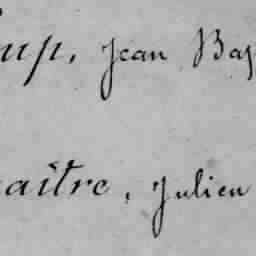 up, Jean Bap
aître, Julien